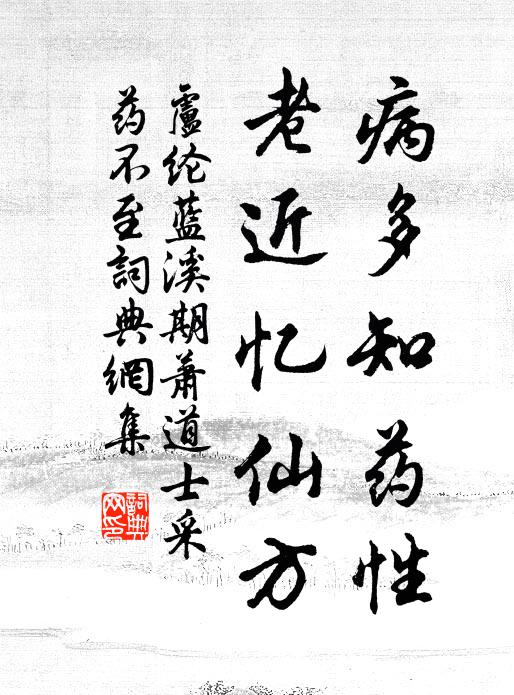 病多知药性
老近忆仙方
盧纶蓝溪期萧道士采
药不至詞典網集
詞典
网印